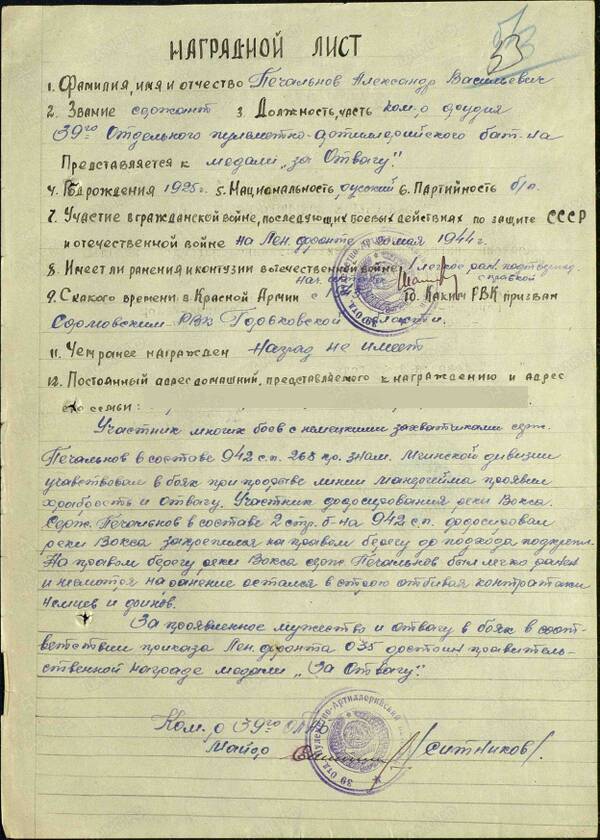 53
НАГРАДНОЙ ЛИСТ
1. Фамилия, имя и отчество Печальнов Александр Васильевич
2. Звание сержант 3. Должность, часть Ком-р орудия
39го Отдельного пулеметно-артиллерийского бат-на
Представляется к медали „за Отвагу".
4. Год рождения 1925г. 5. Национальность русский 6. Партийность б/п.
7. Участие в гражданской войне, последующих боевых действиях по защите СССР
и отечественной войне на Лен. фронте мая 1944г.
8. Имеет ли ранения и контузии в отечественной войне 1 легкое ран. подтвержд.
справкой
9. С какого времени в Красной Армии с 10. Каким РВК призван
Сормовским РВК Горьковской области.
11. Чем ранее награжден Наград не имеет
12. Постоянный адрес домашний, представляемого к награждению и адрес
его семьи:
Участник многих боев с немецкими захватчиками серж.
Печальнов в составе 942 с.п. 268 кр. знам. Мгинской дивизии
участвовал в боях при прорыве линии Мандргейма проявил
храбрость и отвагу. Участник форсирования реки Вокса.
Серж. Печальнов в составе 2 стр. б-на 942 с.п. форсировал
реки Вокса закрепился на правом берегу до подхода подкрепл.
На правом берегу реки Вокса серж. Печальнов был легко ранен
и несмотря на ранение остался в строю отбивая контратаки
немцев и финов.
За проявленное мужество и отвагу в боях в соот-
ветствии приказа Лен. фронта 035 достоин правитель-
ственной награде медали „За Отвагу".
Ком-р 39го ОПАБ
Майор /Ситников/
39 Отд. Пулеметно-Артиллерийский